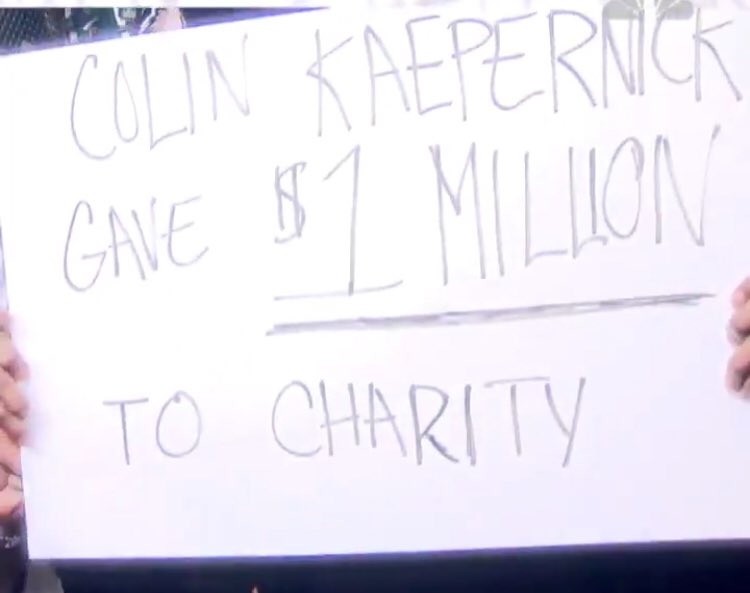 COLIN KAEPERNICK
GAVE $1 MILLION
TO CHARITY